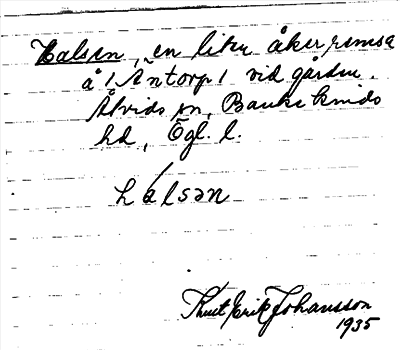 Halsen, en liten åkerremsa
å 1 Äntorp 1 vid gården.
Åtvids sn, Bankekinds
hd, Ögl. l.
hálsen
Knut Erik Johansson
1935